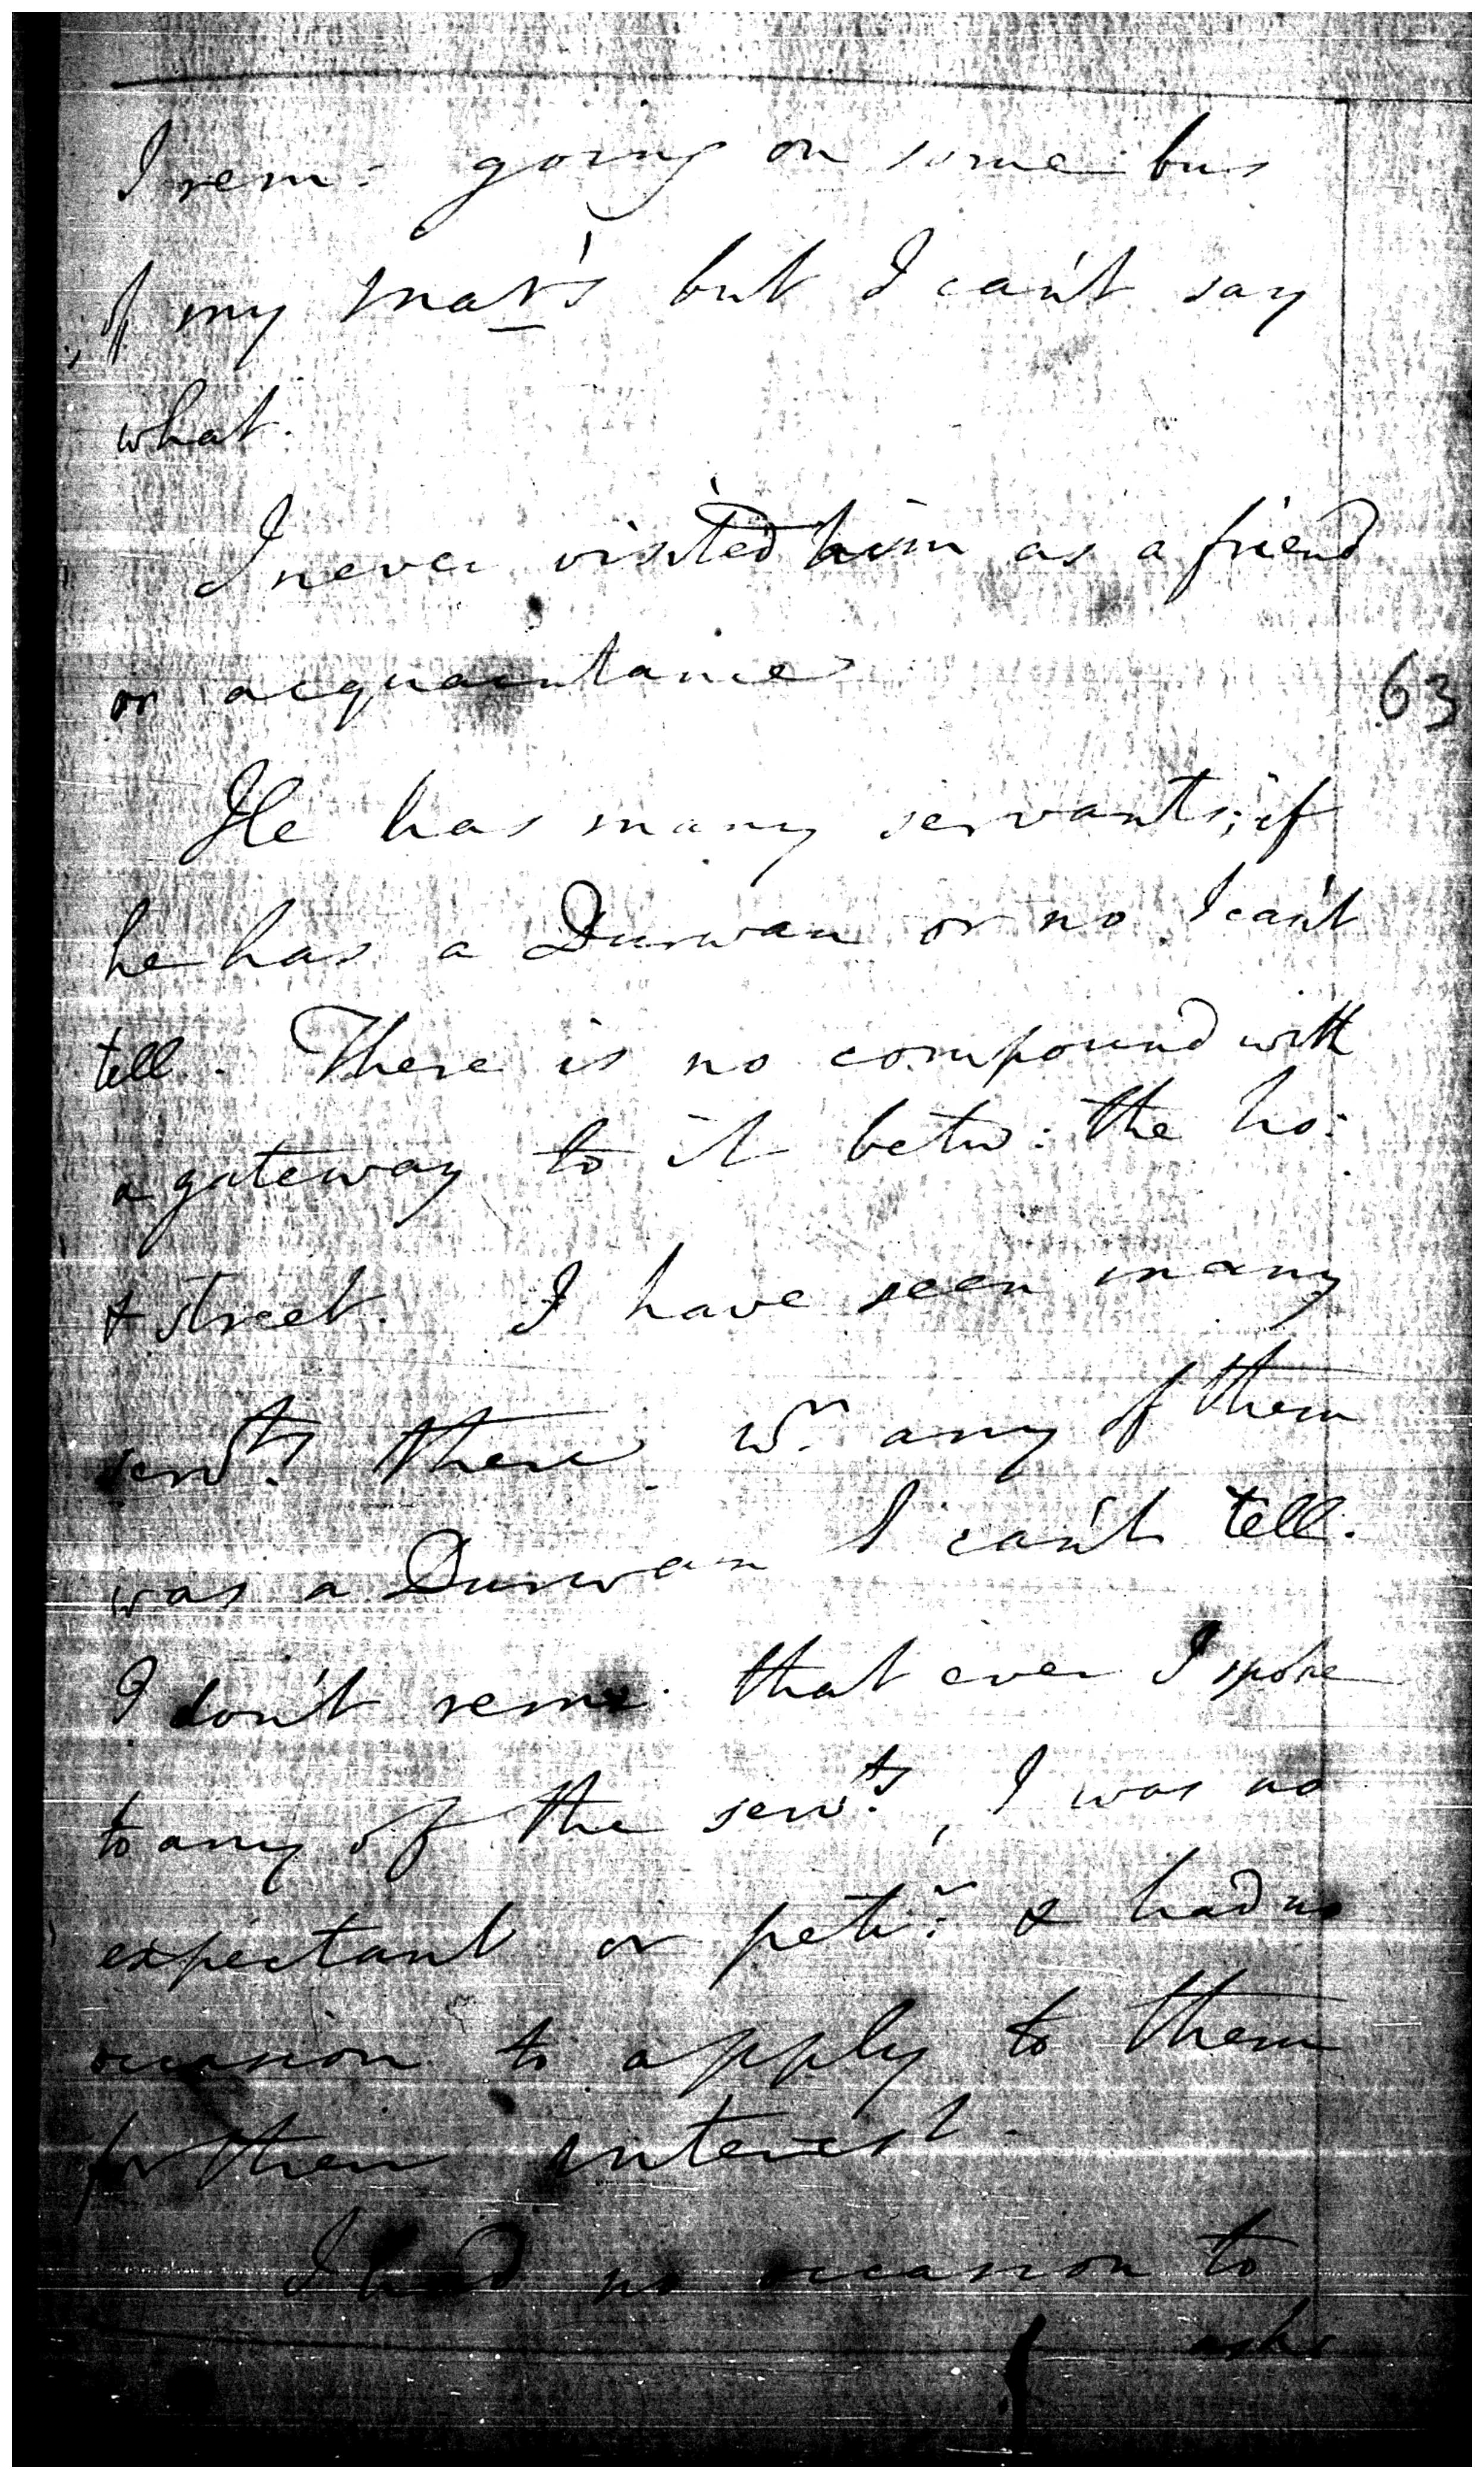 I rem: going on some bus
of my Mar's but I can't say
what.
I never visited him as a friend
or acquaintance
63
He has many servants; if
he has a Durwan or no I can't
tell. There is no compound with
a gateway to it betw: the ho:
& street. I have seen many
servts. there wr. any of them
was a Durwan I can't tell.
I don't rem: that ever I spoke
to any of the servts, I was no
expectant or petr: & had no
occasion to apply to them
for their interest.
I had no occasion to
ask